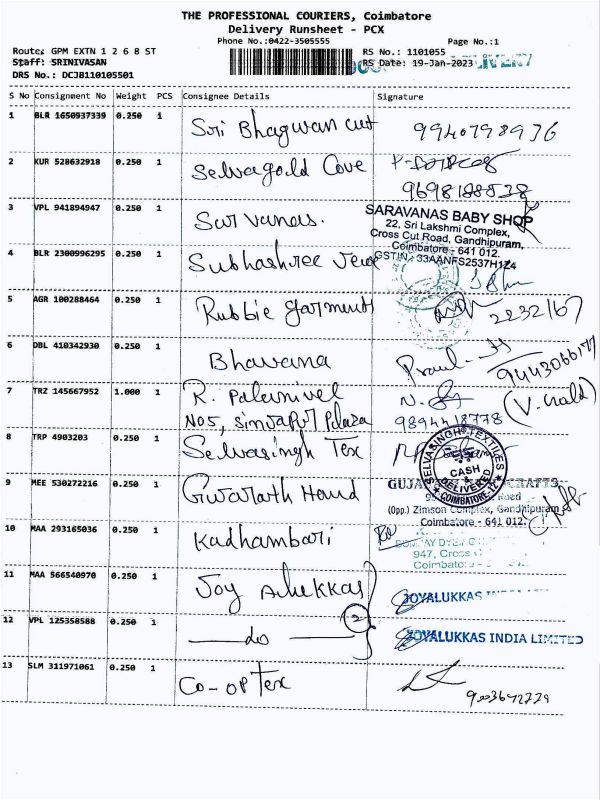 THE PROFESSIONAL COURIERS, Coimbatore
Delivery Runsheet - PCX
Phone No.:0422-3505555 Page No.:1
Route: GPM EXTN 1 2 6 8 ST RS No.: 1101055
Staff: SRINIVASAN RS Date: 19-Jan-2023 DELIVERY
DRS No.: DCJB110105501
S No Consignment No Weight PCS Consignee Details Signature
1 BLR 1650937339 0.250 1 Sri Bhagwan cut 9940798936
2 KUR 528632918 0.250 1 Selvagold Cove
9698188538
3 VPL 941894947 0.250 1 Sarvanas.
SARAVANAS BABY SHOP
22, Sri Lakshmi Complex,
Cross Cut Road, Gandhipuram,
Coimbatore - 641 012.
GSTIN: 33AANFS2537H1Z4
4 BLR 2300996295 0.250 1 Subhashree
5 AGR 100288464 0.250 1 Rubbie garment 2232167
6 DBL 410342930 0.250 1 Bhavana
7 TRZ 145667952 1.000 1 R. Palanivel
No5, Singapur Plaza 9894418778
8 TRP 4903203 0.250 1 Selvasingh Tex
SELVASINGH TEXTILES
CASH
DELIVERED
COIMBATORE-12
9 MEE 530272216 0.250 1 Gujarath Hand
(Opp.) Zimson Complex, Gandhipuram
Coimbatore - 641 012.
10 MAA 293165036 0.250 1 Kadhambari
947, Cross
11 MAA 566540970 0.250 1 Joy Alukkas
JOYALUKKAS
12 VPL 125358588 0.250 1 —do— 2
JOYALUKKAS INDIA LIMITED
13 SLM 311971061 0.250 1 Co-op Tex